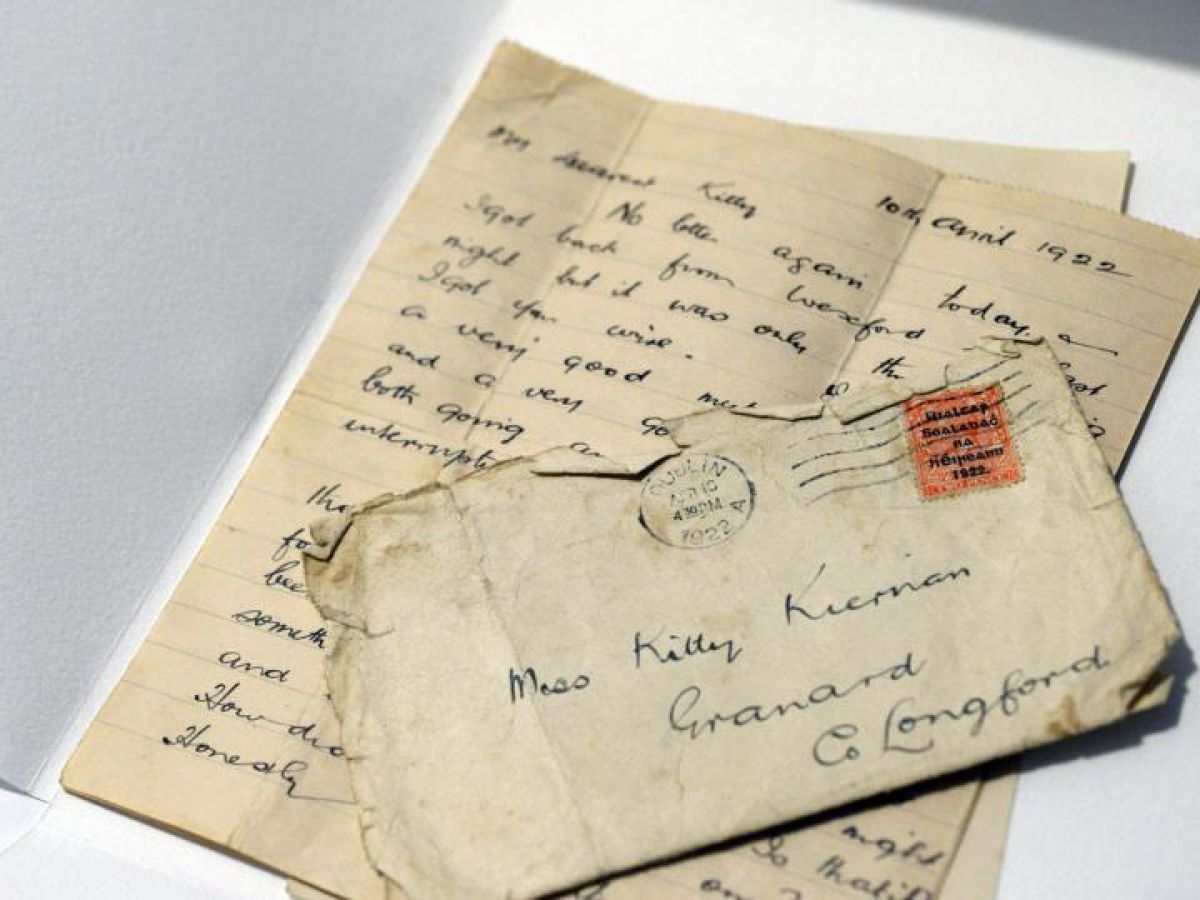 10th April 1922
My dearest Kitty
No letter again today
I got back from Wexford last
night but it was only
I got your wire.
a very good
and a very go
both going
interrupti
tho
fo
bee
someth
and
How did
Honestly
DUBLIN
4 30 PM
1922
Rialtas
Sealadaċ
na
hÉireann
1922.
Miss Kitty Kiernan
Granard
Co Longford
might